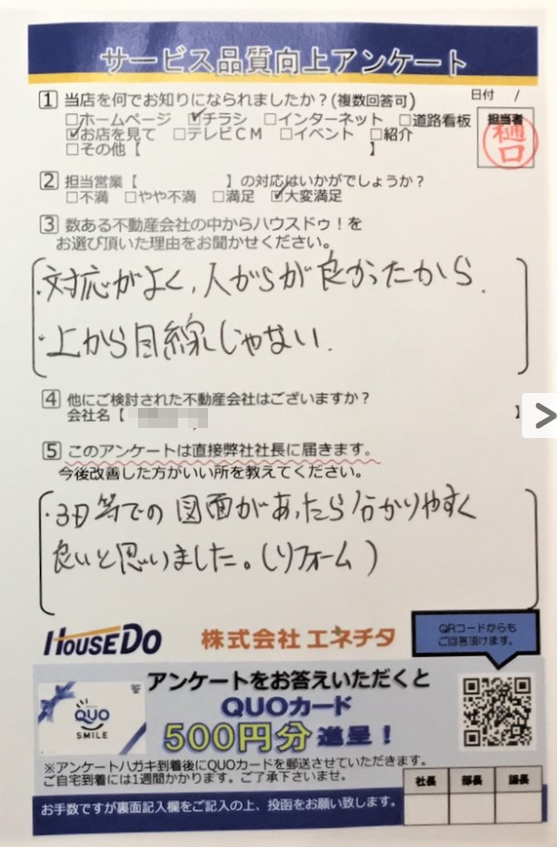 サービス品質向上アンケート
日付 /
1 当店を何でお知りになられましたか？(複数回答可)
□ホームページ ☑チラシ □インターネット □道路看板
☑お店を見て □テレビCM □イベント □紹介
□その他【 】
担当者
樋口
2 担当営業【 】の対応はいかがでしょうか？
□不満 □やや不満 □満足 ☑大変満足
3 数ある不動産会社の中からハウスドゥ！を
お選び頂いた理由をお聞かせください。
・対応がよく、人がらが良かったから.
・上から目線じゃない.
4 他にご検討された不動産会社はございますか？
会社名【 】
5 このアンケートは直接弊社社長に届きます。
今後改善した方がいい所を教えてください。
・3D等での図面があったら分かりやすく
良いと思いました。(リフォーム)
HOUSEDO 株式会社 エネチタ
QRコードからも
ご回答頂けます。
アンケートをお答えいただくと
QUOカード
500円分 進呈！
QUO
SMILE
※アンケートハガキ到着後にQUOカードを郵送させていただきます。
ご自宅到着には1週間かかります。ご了承下さいませ。
社長 部長 課長
お手数ですが裏面記入欄をご記入の上、投函をお願い致します。